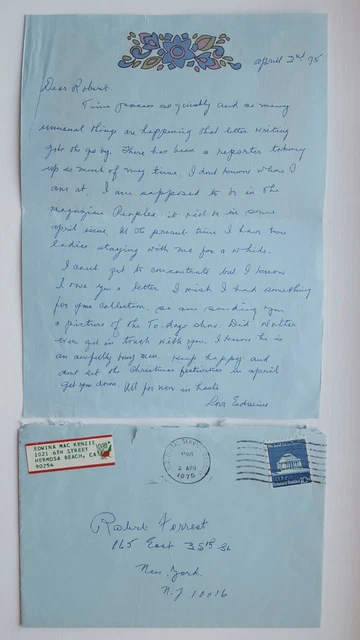 april 2nd 75
Dear Robert.
Time passes so quickly and so many
unusual things are happening that letter writing
gets the go by. There has been a reporter taking
up so much of my time, I dont know where I
am at. I am supposed to be in the
magazine Peoples. it will be in some
april issue. At the present time I have two
ladies staying with me for a while.
I can't get to concentrate but I know
I owe you a letter. I wish I had something
for your collection. so am sending you
a picture of the To-day show. Did Walter
ever get in touch with you. I know he is
an awfully busy man. Keep happy and
dont let the Christmas festivities in april
get you down. All for now in haste
Love Edwina
EDWINA MAC KENZIE
1021 6TH STREET
HERMOSA BEACH, CA
90254
PM
2 APR
1975
10c
Robert Forrest
165 East 35th St
New York.
N.J 10016